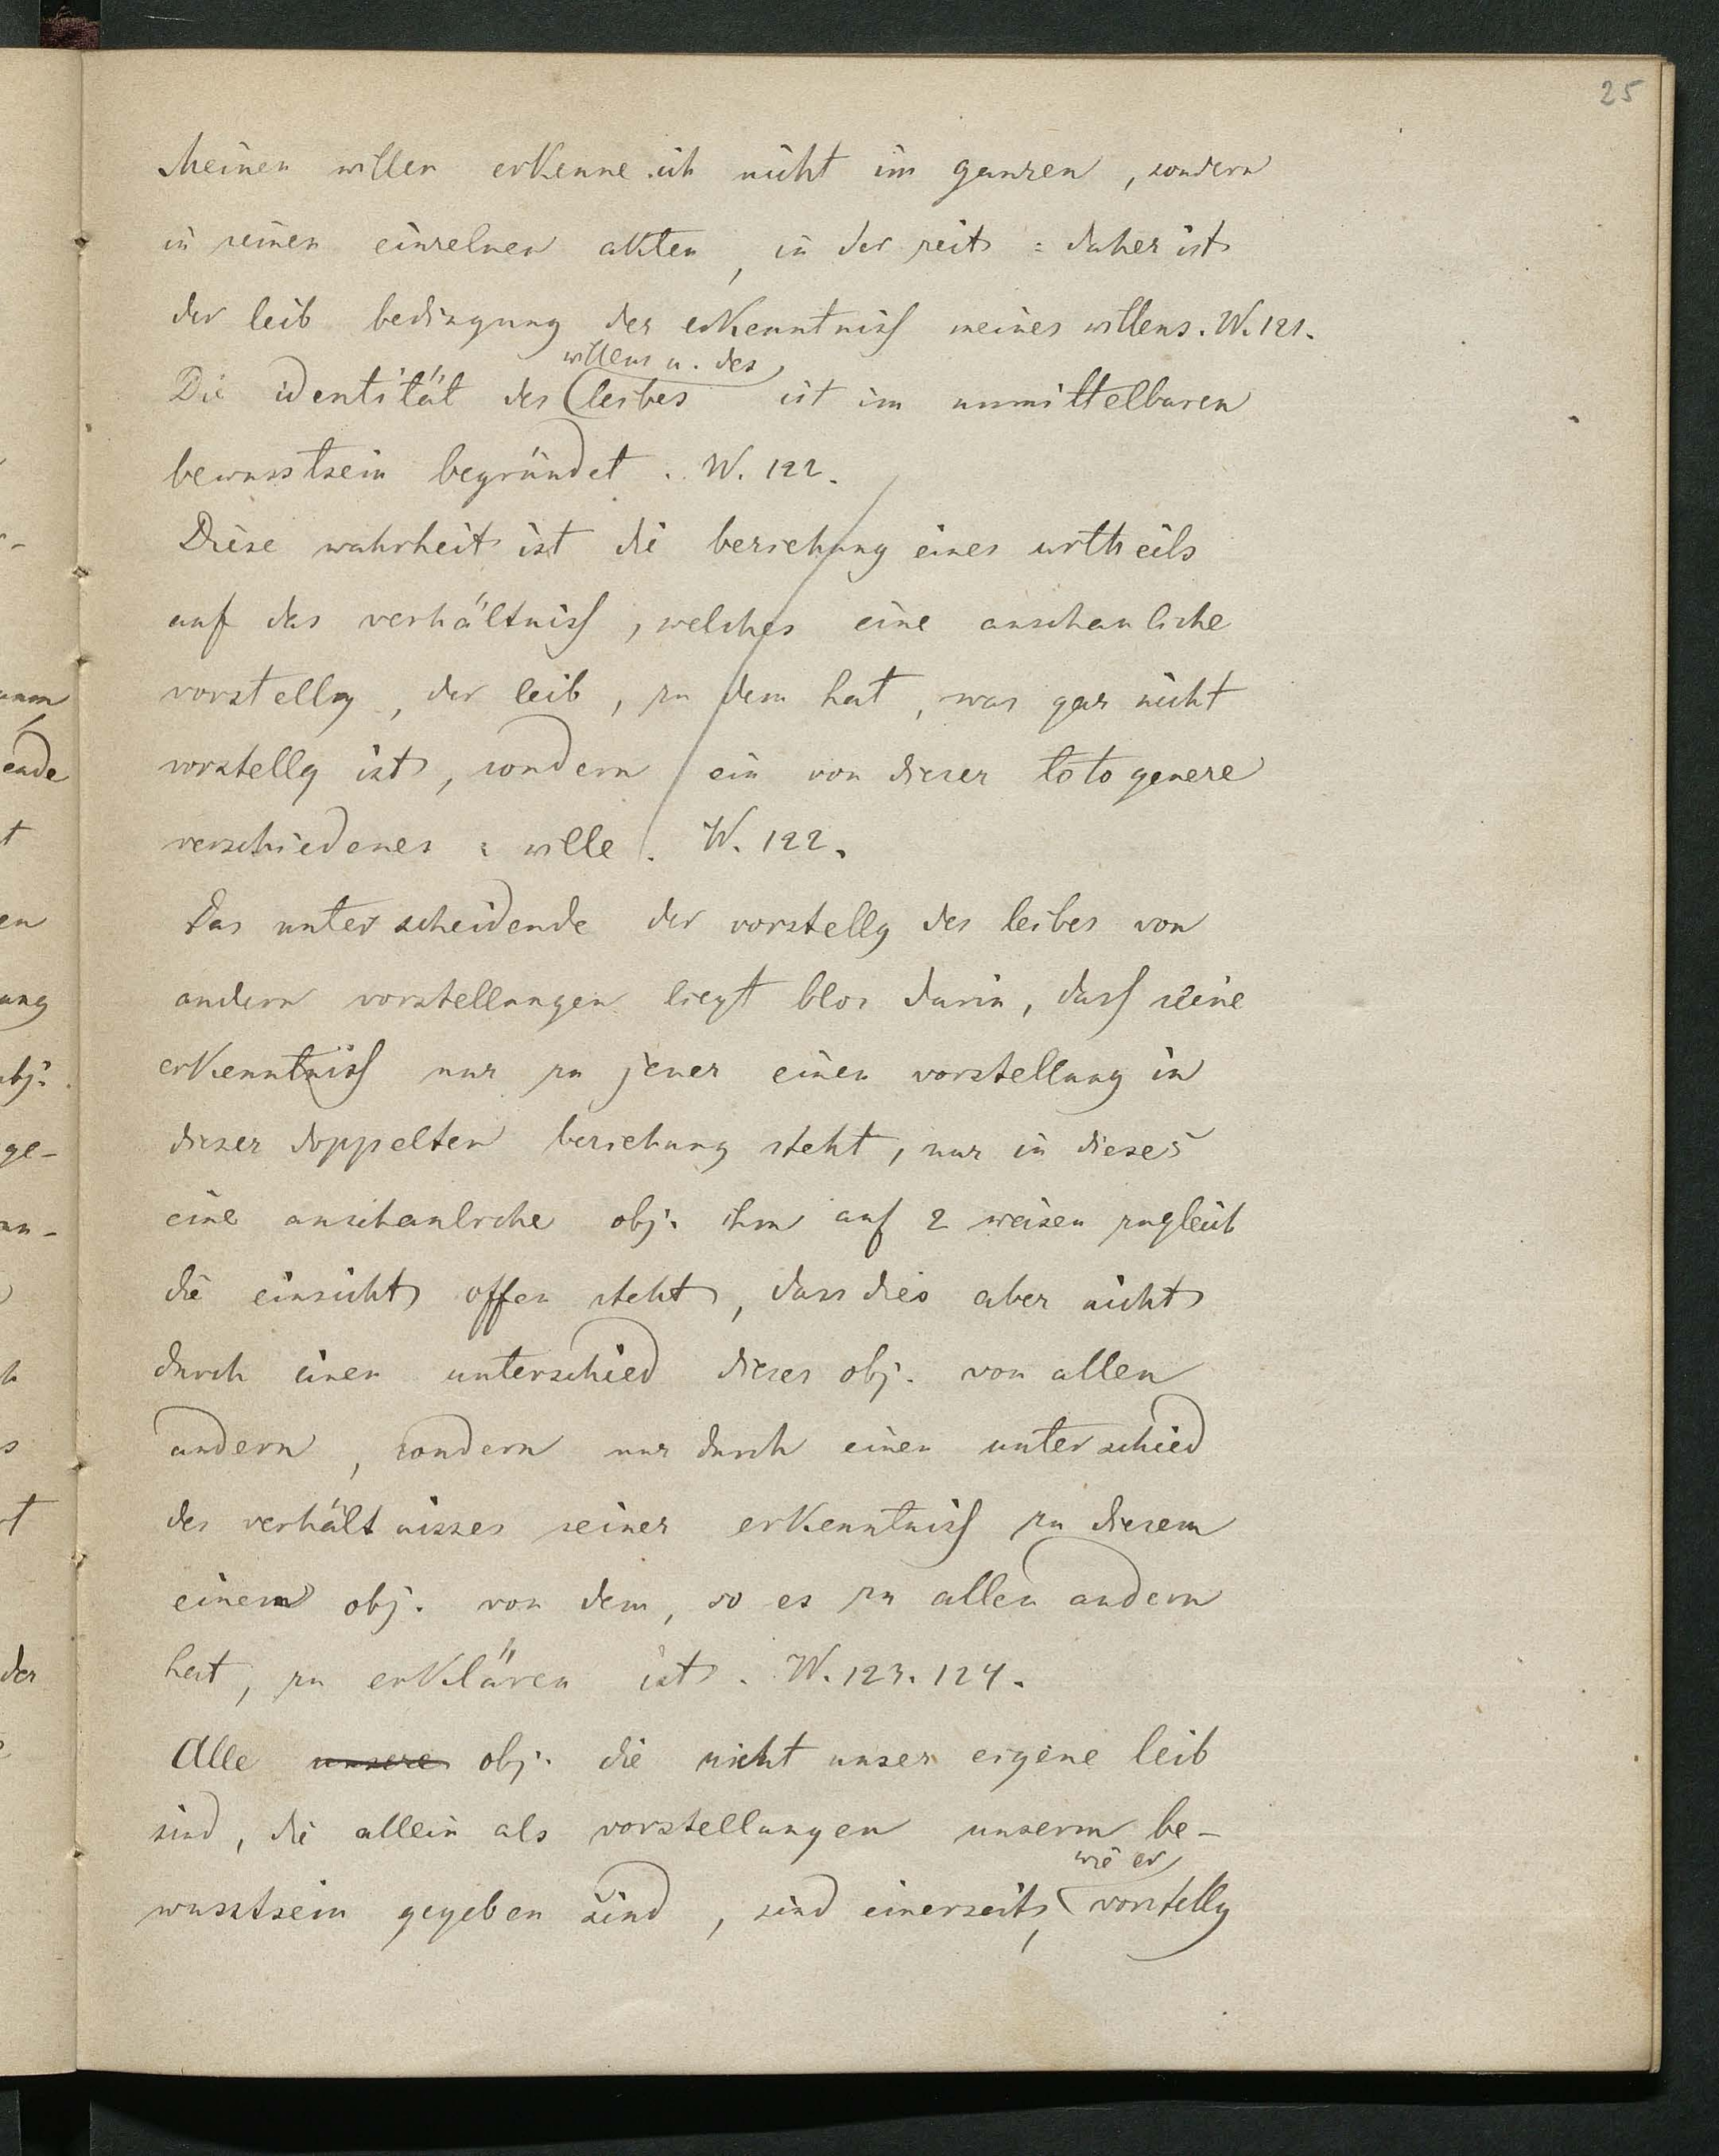 25
Meinen willen erkenne ich nicht im ganzen, sondern
in seinen einzelnen akten, in der zeit : daher ist
der leib bedingung der erkenntniss meines willens. W. 121.
willens u. des
Die identität des leibes ist im unmittelbaren
bewusstsein begründet. W. 122.
Diese wahrheit ist die beziehung eines urtheils
auf das verhältniss, welches eine anschauliche
vorstellg, der leib, zu dem hat, was gar nicht
vorstellg ist, sondern ein von dieser toto genere
verschiedenes : wille. W. 122.
Das unterscheidende der vorstellg des leibes von
andern vorstellungen liegt blos darin, dass seine
erkenntniss nur zu jener einen vorstellung in
dieser doppelten beziehung steht, nur in dieses
eine anschauliche obj. ihm auf 2 weisen zugleich
die einsicht offen steht, dass dies aber nicht
durch einen unterschied dieses obj. von allen
andern, sondern nur durch einen unterschied
des verhältnisses seiner erkenntniss zu diesem
einem obj. von dem, so es zu allen andern
hat, zu erklären ist. W. 123. 124.
Alle unsere obj. die nicht unser eigene leib
sind, die allein als vorstellungen unserm be-
wie er
wusstsein gegeben sind, sind einerseits, vorstellg